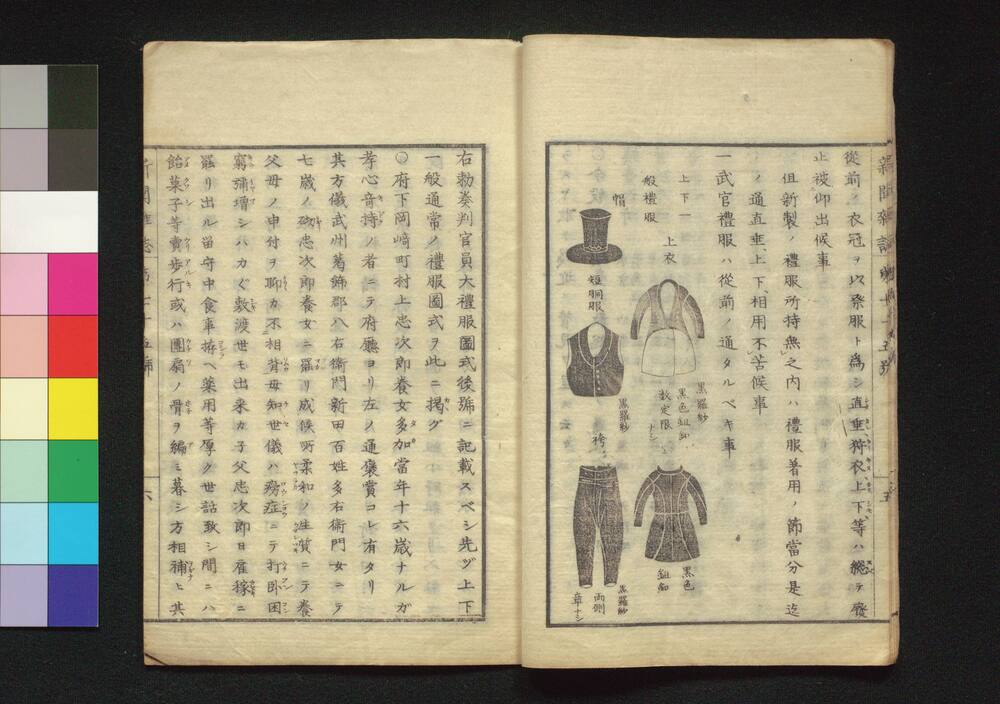 從前ノ衣冠ヲ以祭服ト爲シ直垂狩衣上下等ハ總テ廢
止被仰出候事
但新製ノ禮服所持無之内ハ禮服著用ノ節當分是迄
ノ通直垂上下相用不苦候事
一武官禮服ハ從前ノ通タルベキ事
上下一
般禮服
帽
上衣
短胴服
黒羅紗
黒色組紐
数定限
ナシ
黒羅紗
袴
黒色
組紐
黒羅紗
両側
章ナシ
五
右勅奏判官員大禮服圖式後號ニ記載スベシ先ヅ上下
一般通常ノ禮服圖式ヲ此ニ掲グ
〇府下岡崎町村上忠次郎養女多加當年十六歳ナルガ
孝心奇特ノ者ニテ府廳ヨリ左ノ通褒賞コレ有タリ
其方儀武州葛飾郡八右衛門新田百姓多右衛門女ニテ
七歳ノ砌忠次郎養女ニ罷リ成候所柔和ノ生質ニテ養
父母ノ申付ヲ聊カ不相背母知世儀ハ癆症ニテ打臥困
窮彌増シハカ〲敷渡世モ出来カ子父忠次郎日雇稼ニ
罷リ出ル留守中食事拵ヘ薬用等厚ク世話致シ間ニハ
飴菓子等賣歩行或ハ團扇ノ骨ヲ編ミ暮シ方相補ヒ其
六